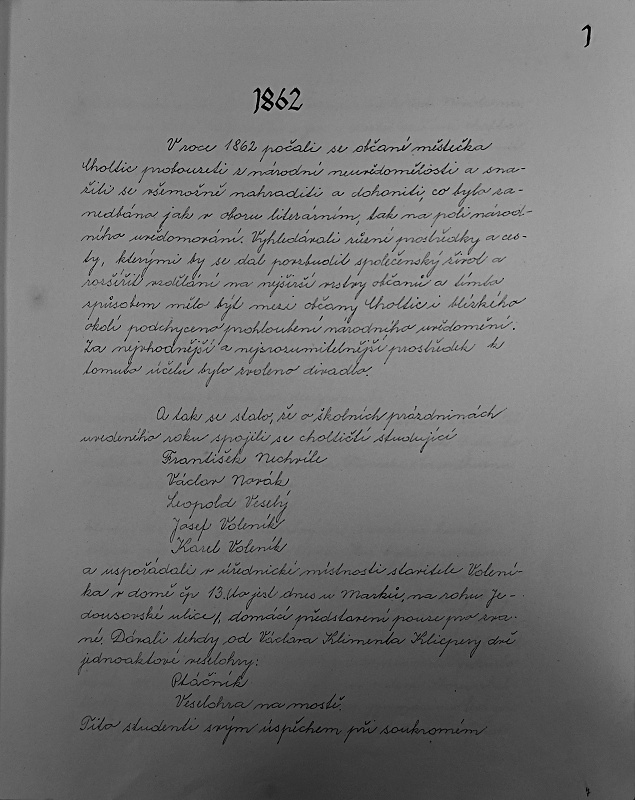 1
1862
V roce 1862 počali se občané městečka
Choltic probouzeti z národní neuvědomělosti a sna-
žili se všemožně nahraditi a dohoniti, co bylo za-
nedbáno jak v oboru literárním, tak na poli národ-
ního uvědomování. Vyhledávali různé prostředky a ces-
ty, kterými by se dal povzbudit společenský život a
rozšířit vzdělání na nejširší vrstvy občanů a tímto
způsobem mělo být mezi občany Choltic i blízkého
okolí podchyceno prohloubení národního uvědomění.
Za nejvhodnější a nejsrozumitelnější prostředek k
tomuto účelu bylo zvoleno divadlo.
A tak se stalo, že o školních prázdninách
uvedeného roku spojili se choltičtí studující
František Nechvíle
Václav Novák
Leopold Veselý
Josef Voleník
Karel Voleník
a uspořádali v úřednické místnosti stavitele Volení-
ka v domě čp 13. /to jest dnes u Marků, na rohu Je-
dousovské ulice/, domácí představení pouze pro zva-
né. Dávali tehdy od Václava Klimenta Klicpery dvě
jednoaktové veselohry:
Ptáčník
Veselohra na mostě.
Tito studenti svým úspěchem při soukromém